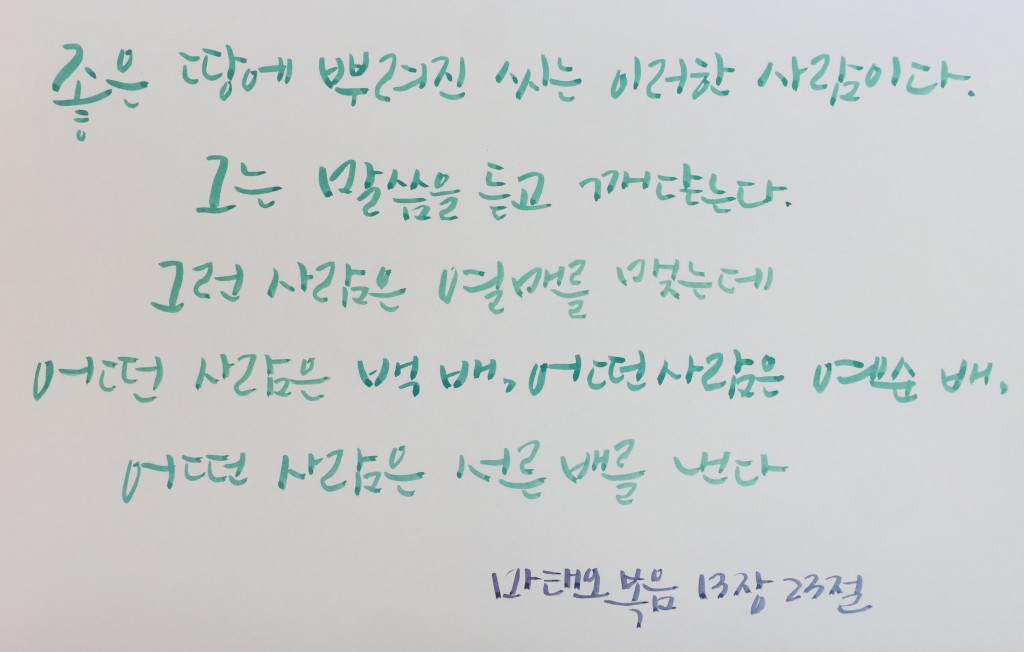 좋은 땅에 뿌려진 씨는 이러한 사람이다.
그는 말씀을 듣고 깨닫는다.
그런 사람은 열매를 맺는데
어떤 사람은 백 배, 어떤 사람은 예순 배,
어떤 사람은 서른 배를 낸다
마태오복음 13장 23절